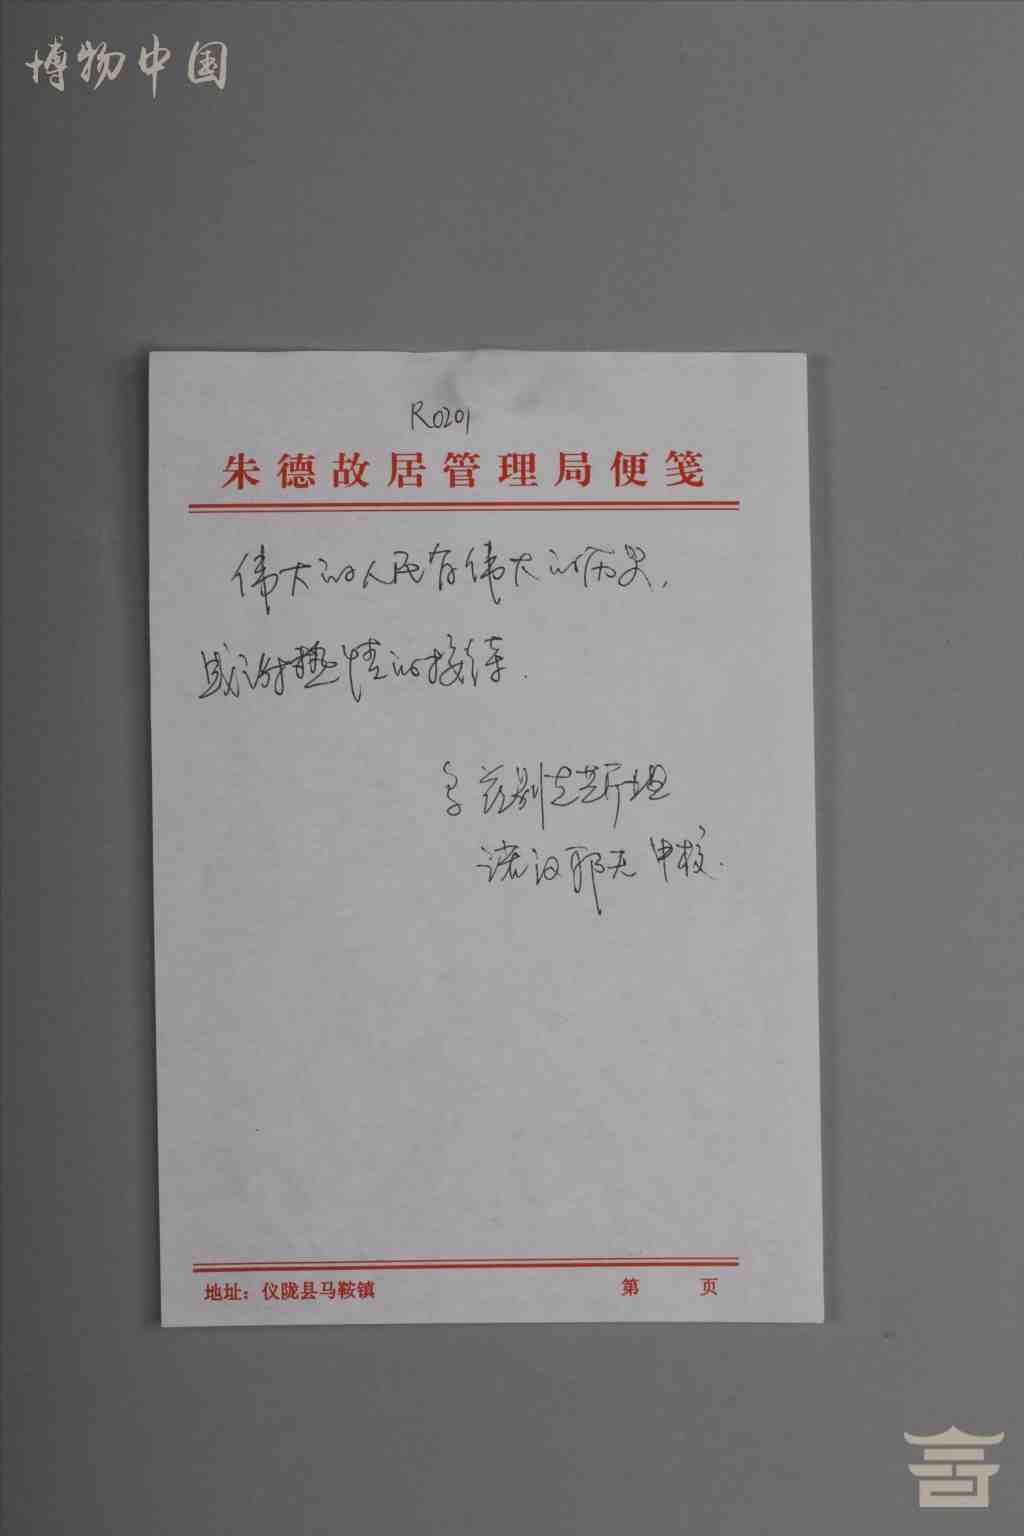 博物中国
R0201
朱德故居管理局便笺
伟大的人民有伟大的历史,
感谢热情的接待.
乌兹别克斯坦
诺议耶夫 中校.
地址：仪陇县马鞍镇
第 页